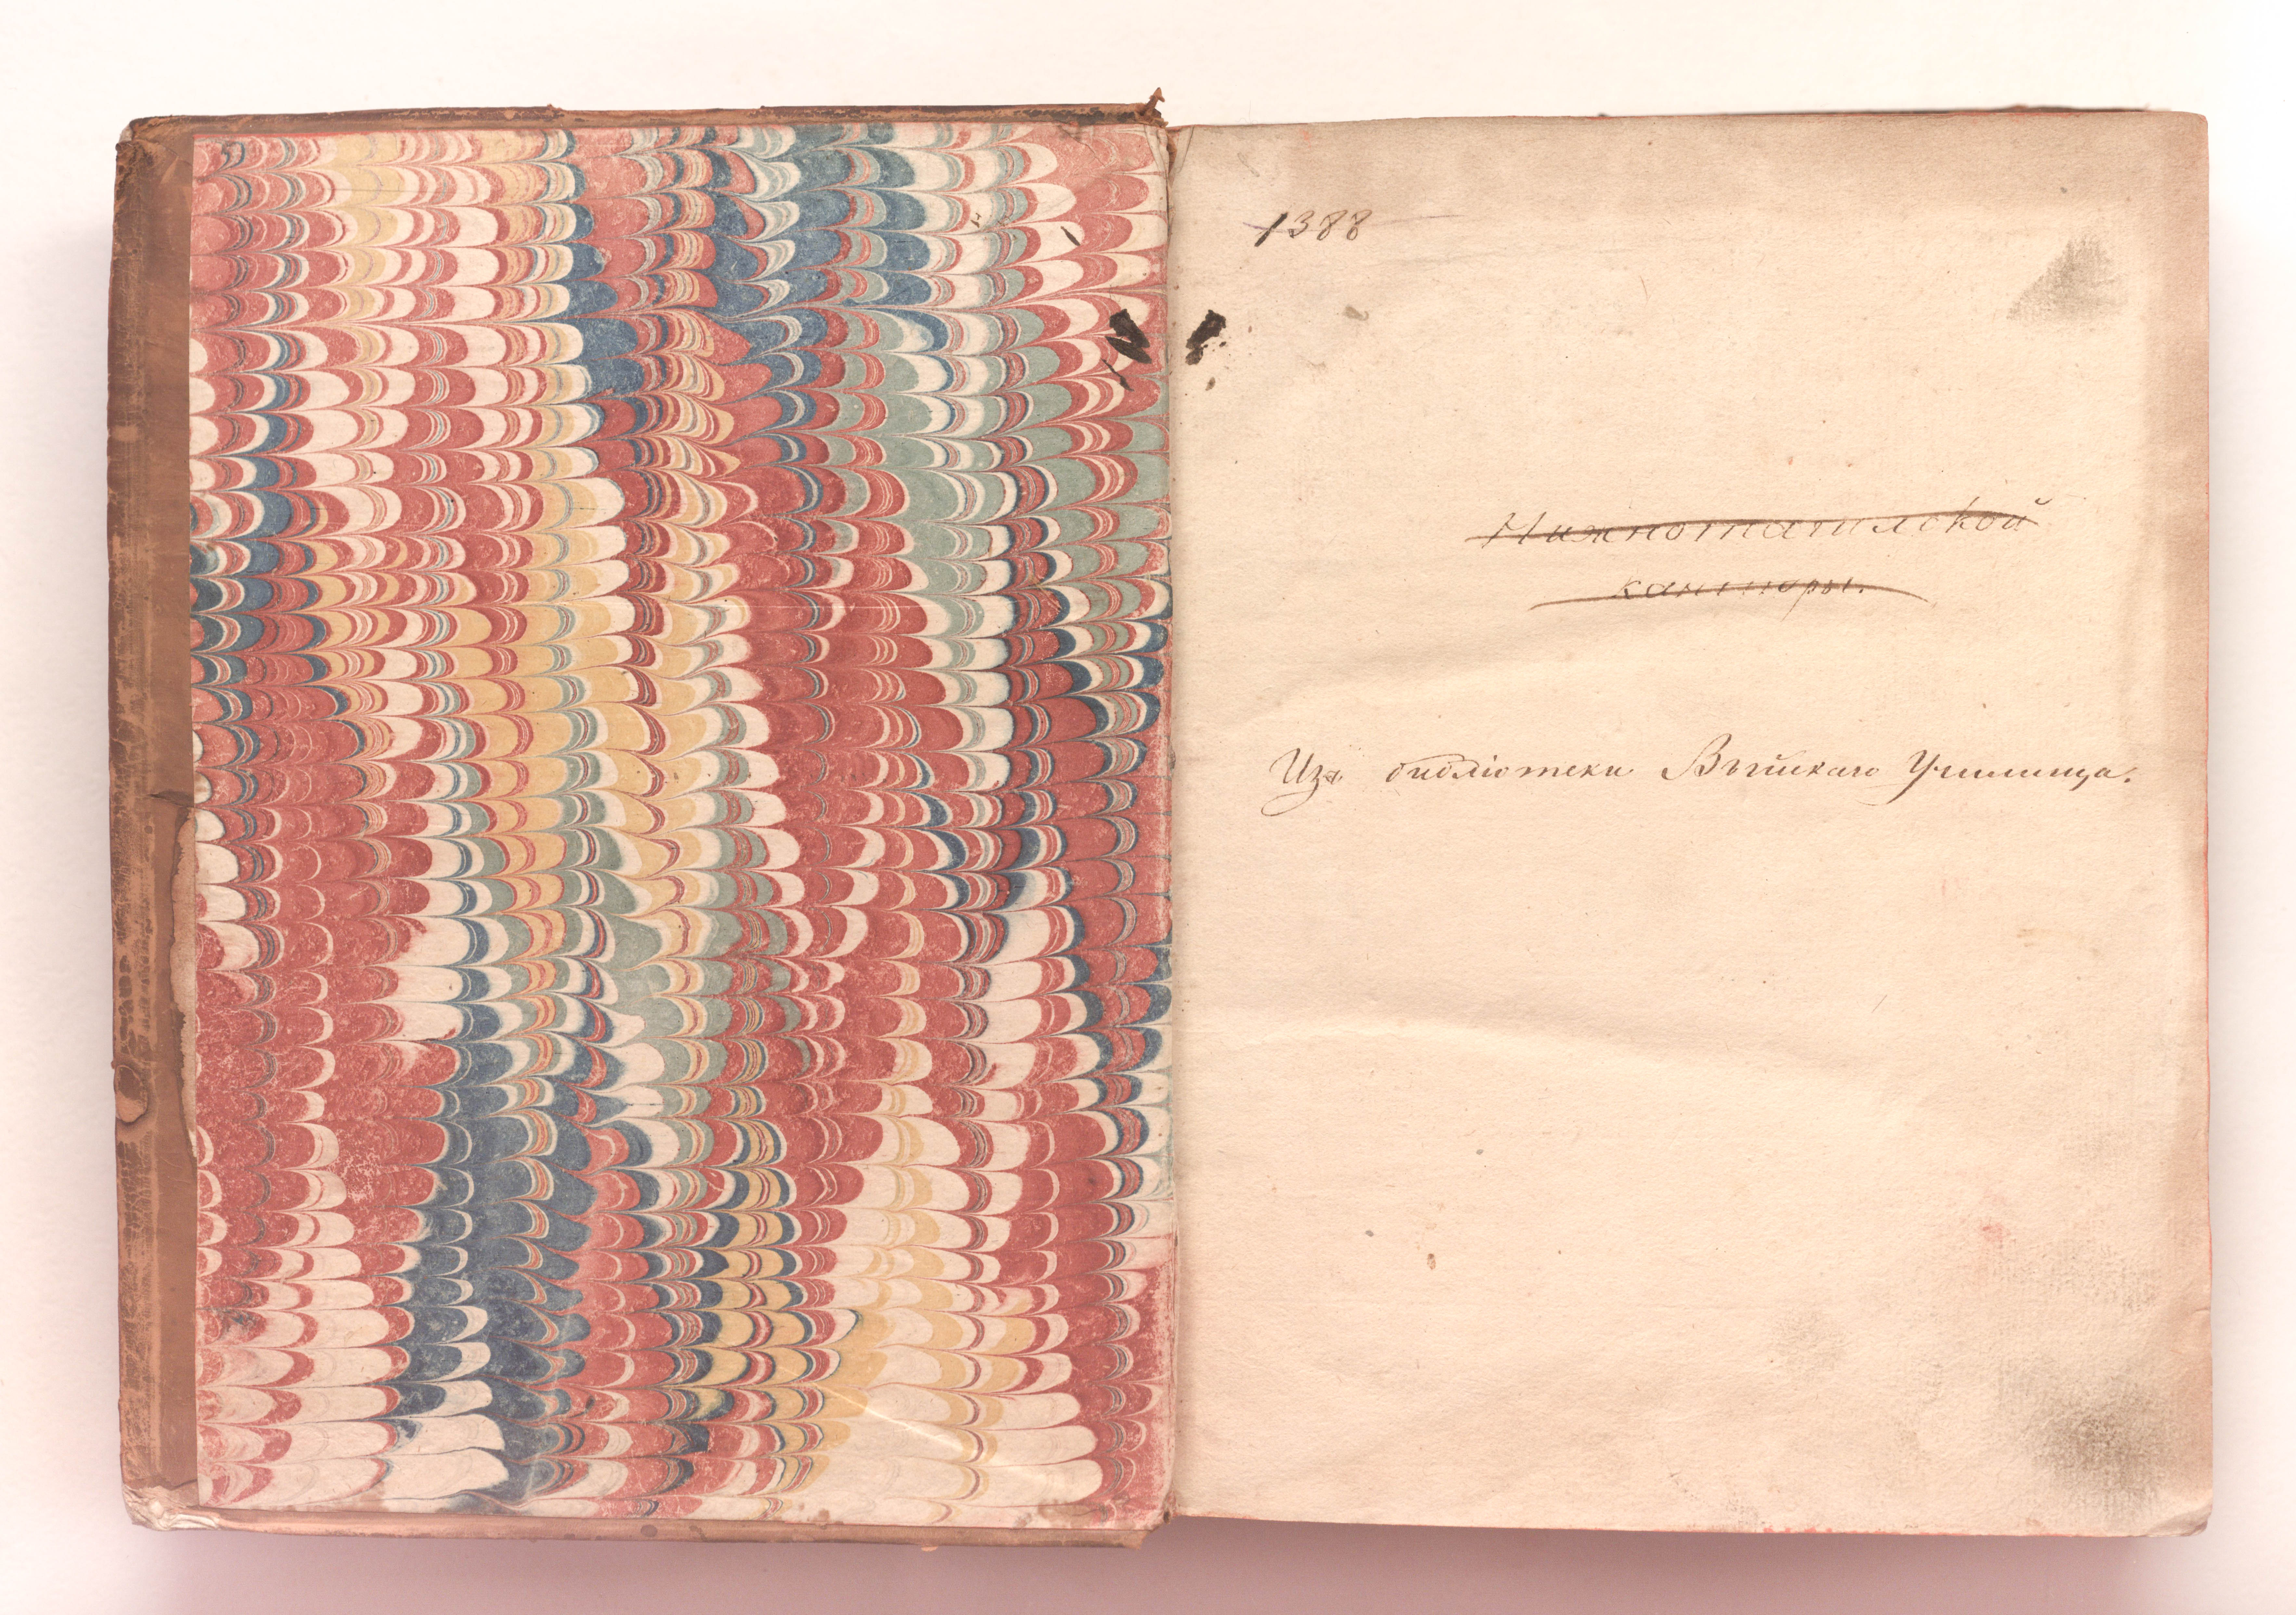 1388
Нижнотагилской
канторы.
Изъ библіотеки Выйскаго Училища.